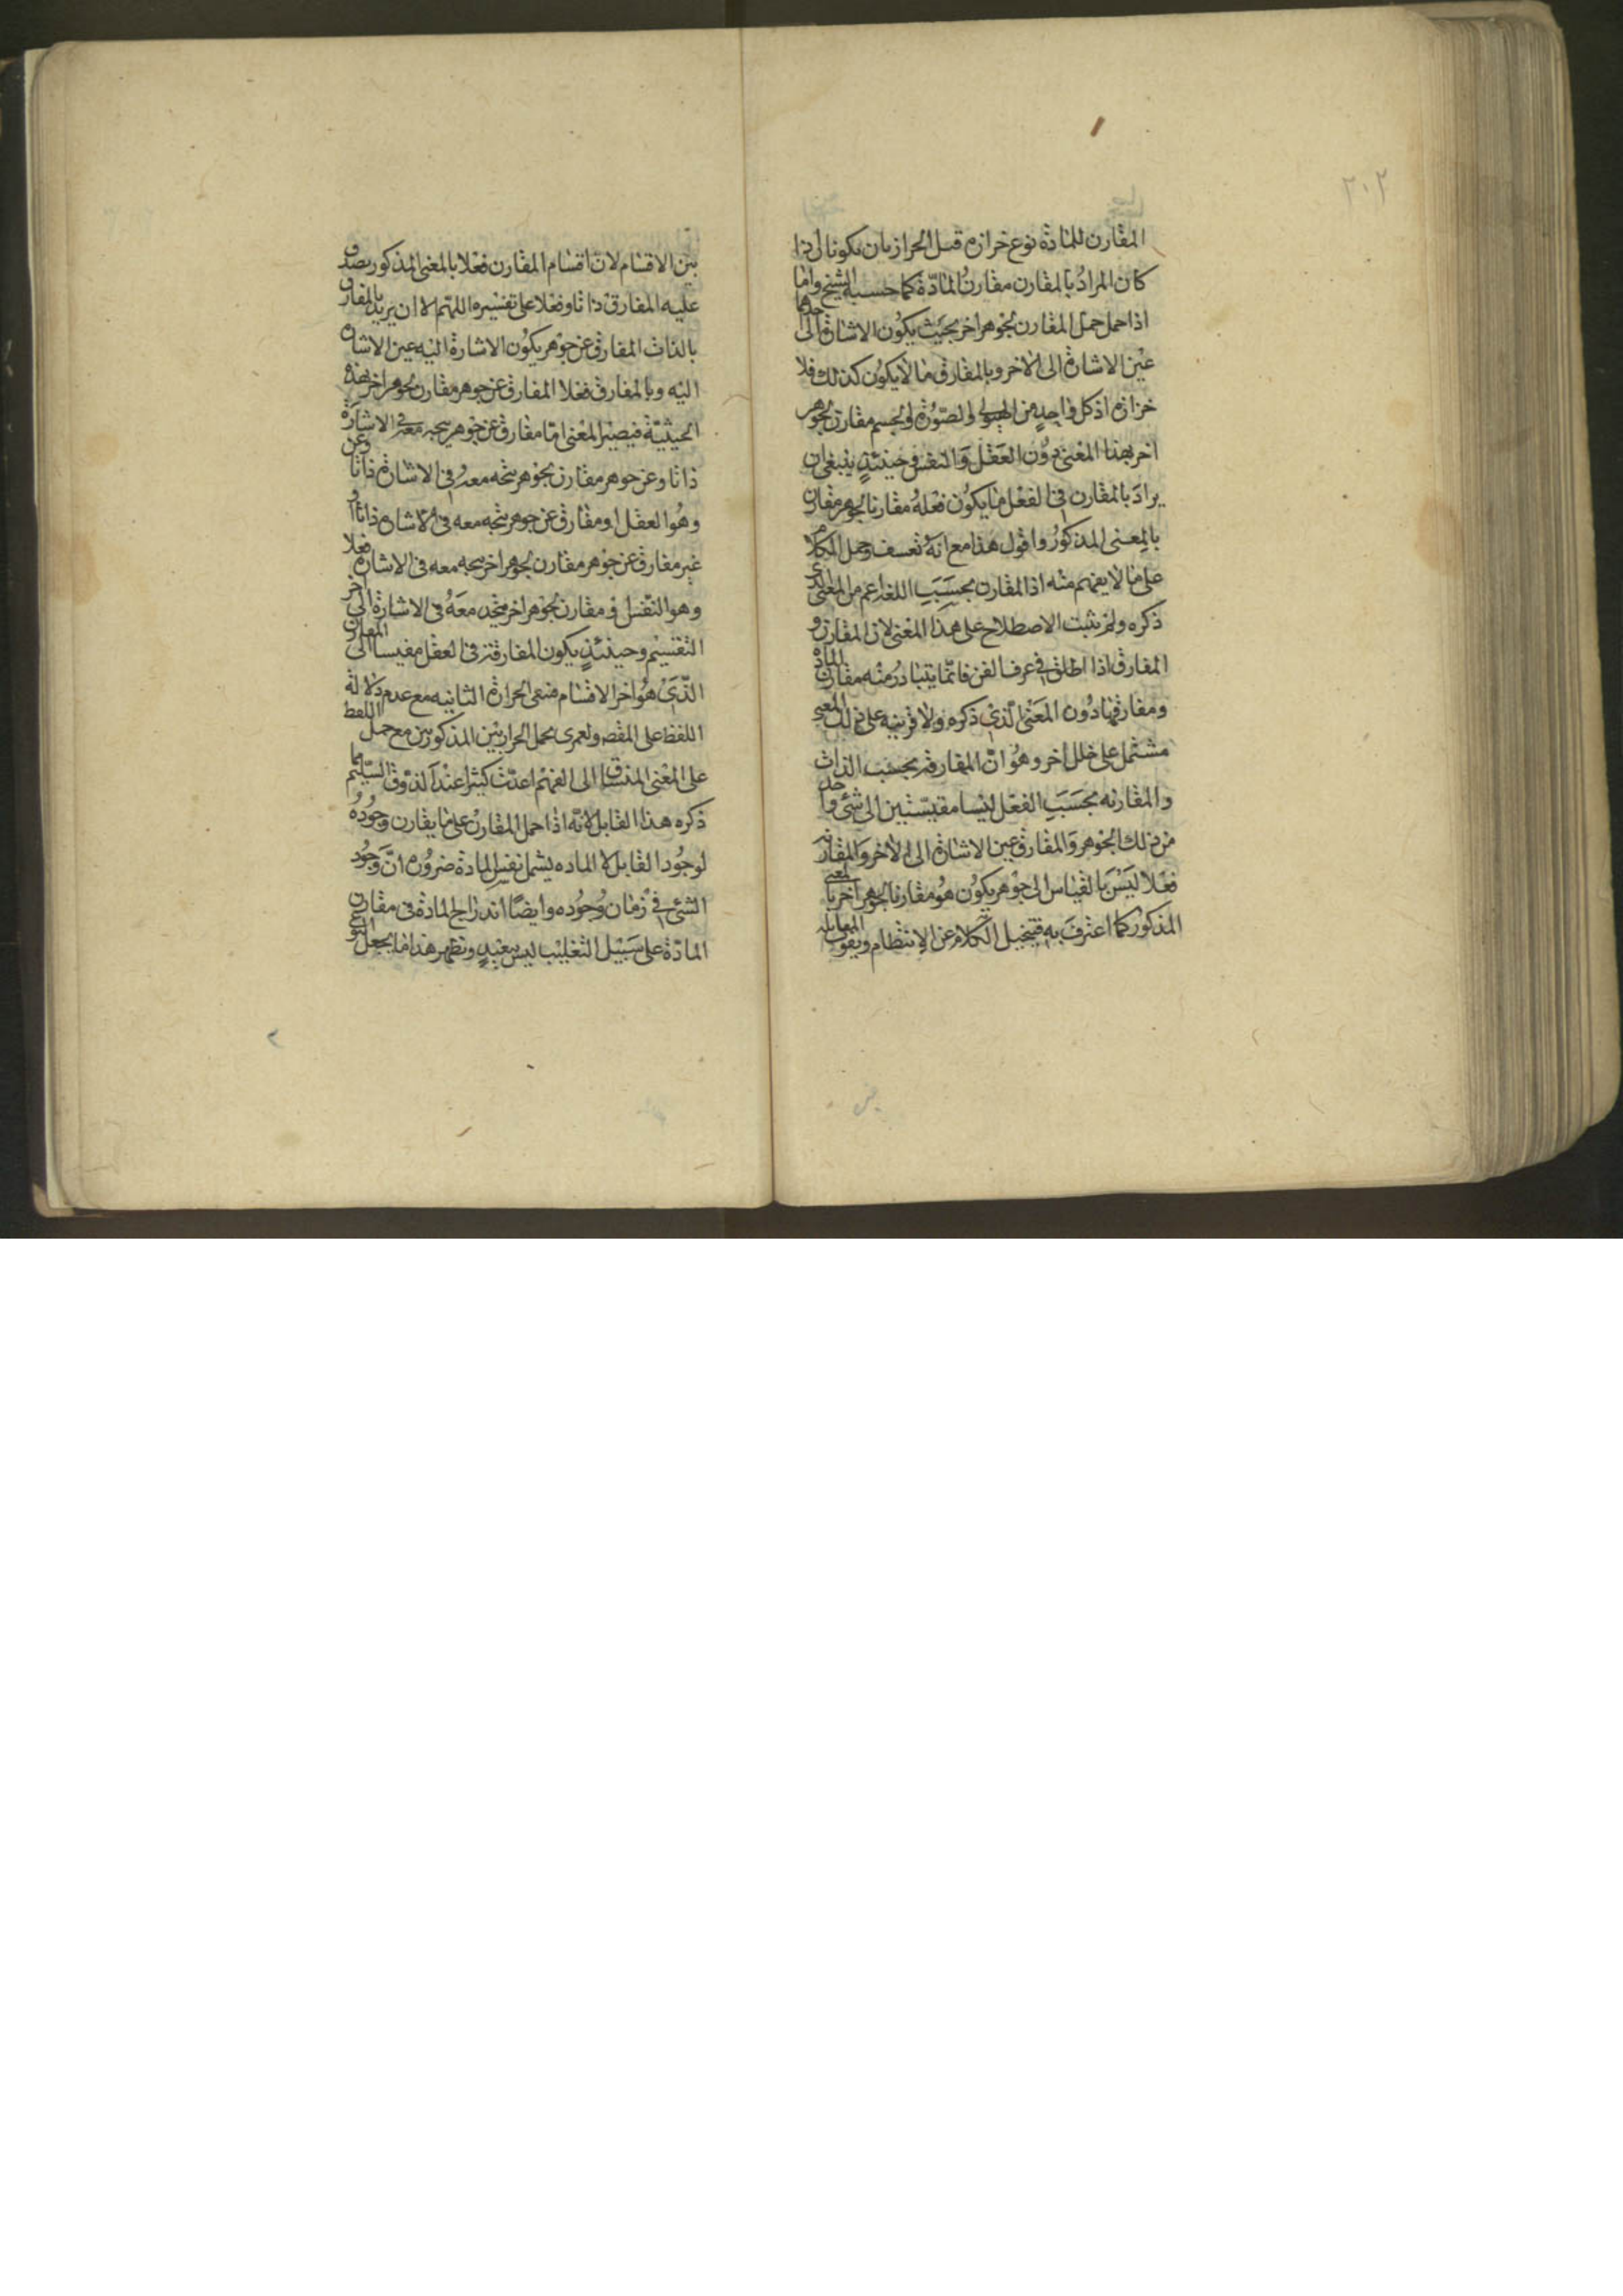 ٢٠٢
المقارن للمادة نوع خرازه قبل الحرازتان يكونا اذا
كان المراد بالمقارن مقارن المادة كما حسبه الشيخ واما
اذا حمل حمل المقارن لجوهر اخر بحيث يكون الاشارة الى احدهما
عين الاشارة الى الاخر وبالمفارق ما لا يكون كذلك فلا
خرازه اذ كل واحد من الهيولى والصورة والجسم مقارن لجوهر
اخر بهذا المعنى دون العقل والنفس حينئذ ينبغي ان
يراد بالمقارن في الفعل ما يكون فعله مقارنا لجوهر مقارن
بالمعنى المذكور واقول هذا مع انه تعسف وحمل الكلام
على ما لا يفهم منه اذ المقارن بحسب اللغة اعم من المعنى الذي
ذكره ولم يثبت الاصطلاح على هذا المعنى لان المقارن و
المفارق اذا اطلق في عرف الفن فانما يتبادر منه مقارن المادة
ومفارقها دون المعنى الذي ذكره ولا قرينه على ذلك المعنى
مشتمل على خلل اخر وهو ان المفارقه بحسب الذات
والمقارنه بحسب الفعل ليسا مقيستين الى شئ واحد
من ذلك الجوهر والمفارق عين الاشارة الى الاخر والمقارنه
فعلا ليس بالقياس الى جوهر يكون هو مقارنا لجوهر اخر بالمعنى
المذكور كما اعترف به فيتخيل الكلام عن الانتظام ويفوت المقابله
بين الاقسام لان اقسام المقارن فعلا بالمعنى المذكور يصدق
عليه المفارق ذاتا وفعلا على تفسيره اللهم الا ان يريد بالمفارق
بالذات المفارق عن جوهر يكون الاشارة اليه عين الاشارة
اليه وبالمفارق فعلا المفارق عن جوهر مقارن لجوهر اخر بهذه
الحيثية فيصير المعنى اما مفارق عن جوهر يتحد معه في الاشارة
ذاتا وعن جوهر مقارن لجوهر يتحد معه في الاشارة ذاتا وعن
وهو العقل او مفارق عن جوهر يتحد معه في الاشارة ذاتا و
غير مفارق عن جوهر مقارن لجوهر اخر يتحد معه في الاشارة فعلا
وهو النفس او مقارن لجوهر اخر متحد معه في الاشارة الى اخر
التقسيم وحينئذ يكون المفارقة في العقل مقيسا الى المقارن
الذي هو اخر الاقسام فيبقى الحرازة الثانيه مع عدم دلالة
اللفظ على المقصه ولعمرى تحمل الحرازتين المذكورتين مع حمل اللفظ
على المعنى المنساق الى الفهم اعذب كثيرا عند الذوق السليم مما
ذكره هذا القابل لانه اذا حمل المقارن على ما يقارن وجوده
لوجود القابل لا الماده يشمل نفس المادة ضرورة ان وجود
الشئ في زمان وجوده وايضا اندراج المادة في مقارن
المادة على سبيل التغليب ليس ببعيد ونظير هذا ما يجعل